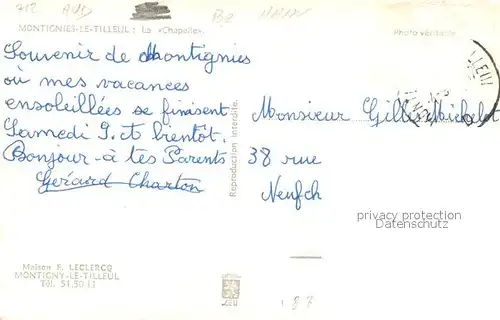 MONTIGNIES-LE-TILLEUL : La «Chapelle».
Photo véritable
Souvenir de Montignies
où mes vacances
ensoleillées se finissent
Samedi 9. et bientôt.
Bonjour à tes Parents
Gérard Charton
Monsieur Gillis Michelot
38 rue
Neufch
Reproduction interdite.
privacy protection
Datenschutz
Maison F. LECLERCQ
MONTIGNY-LE-TILLEUL
Tél. 51.50.11
187